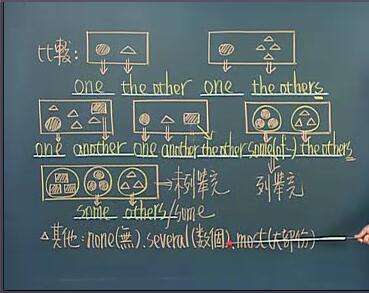 比較:
one the other one the others
one another one another the other some(of~) the others
未列舉完 列舉完
some others/some
△其他: none(無). several(數個). most(大部份)